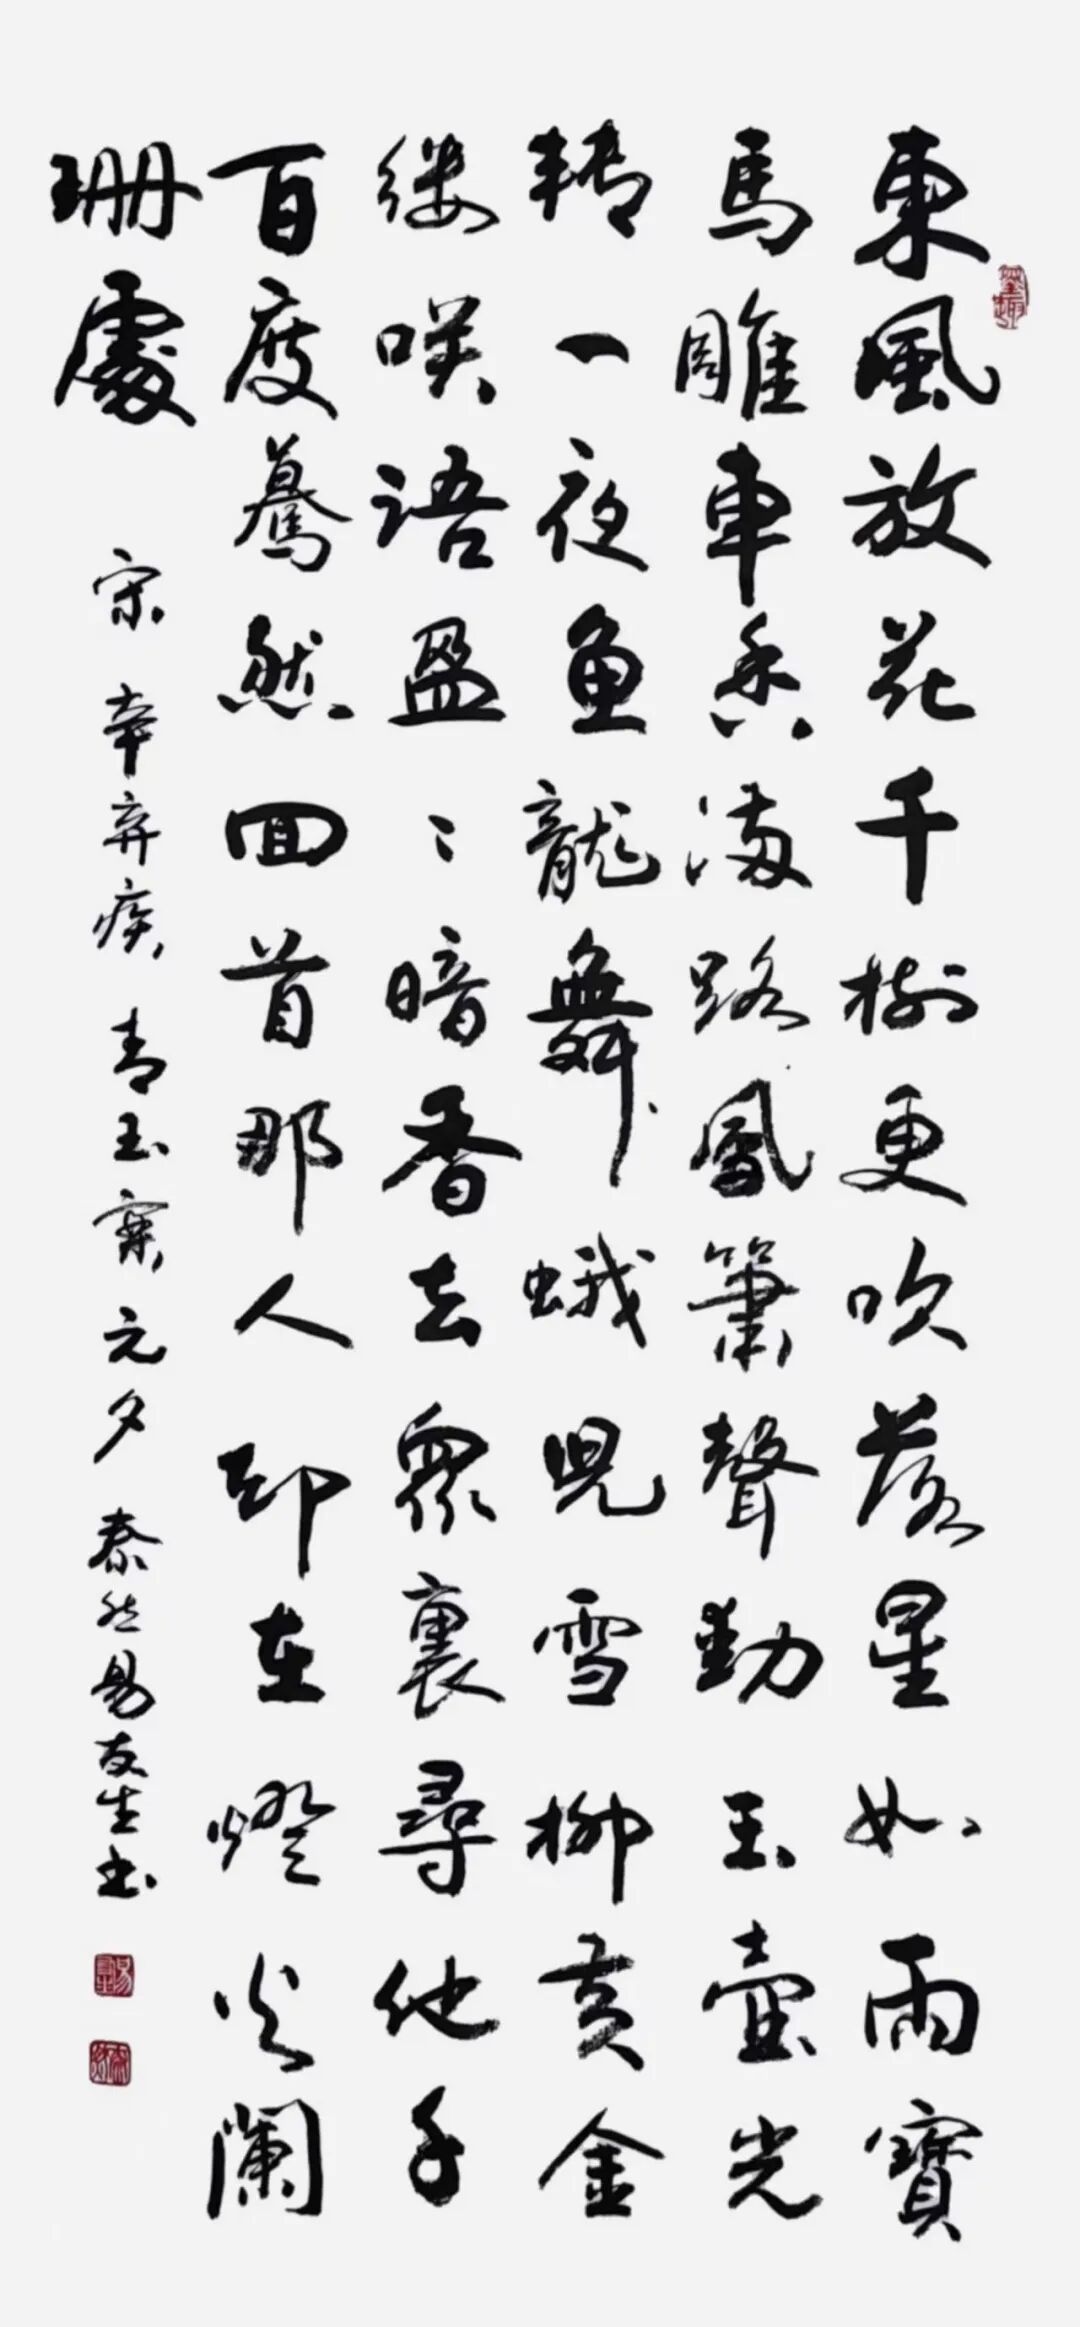 東風放花千樹更吹落星如雨寶
馬雕車香滿路鳳簫聲動玉壺光
轉一夜鱼龍舞蛾兒雪柳黄金
縷咲語盈〻暗香去眾裏尋他千
百度驀然回首那人却在燈火闌
珊處 宋 辛弃疾 青玉案 元夕 泰然易友生书
墨趣